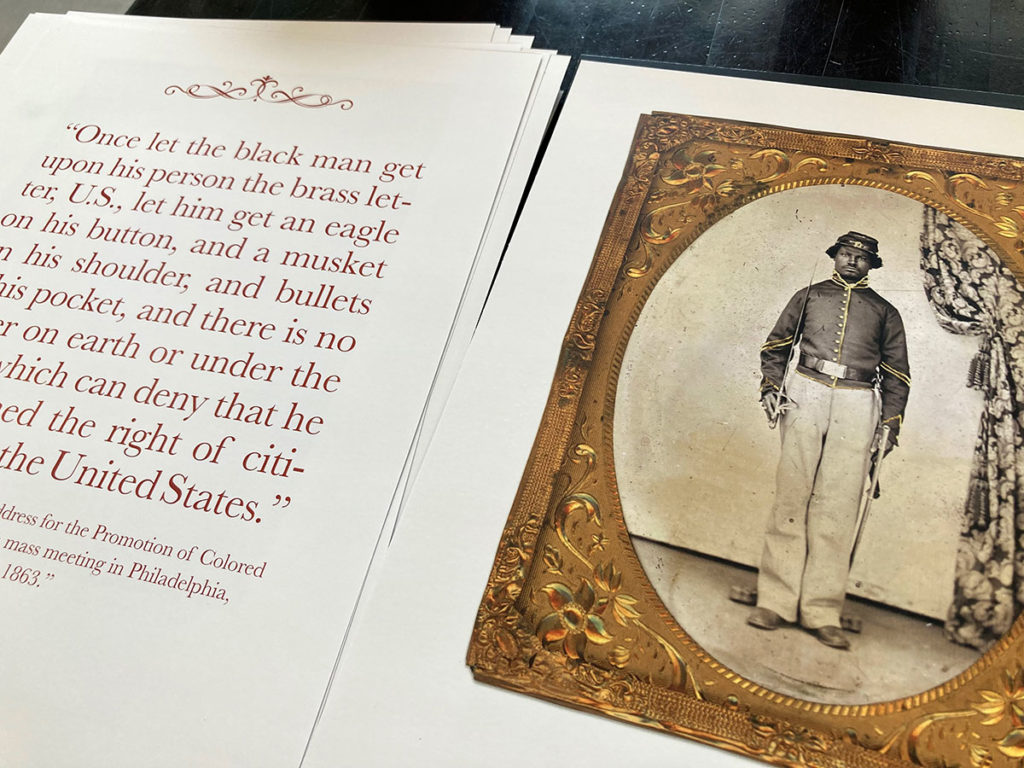 “Once let the black man get
upon his person the brass let-
ter, U.S., let him get an eagle
on his button, and a musket
his shoulder, and bullets
his pocket, and there is no
on earth or under the
which can deny that he
the right of citi-
the United States.”
for the Promotion of Colored
mass meeting in Philadelphia,
1863.”